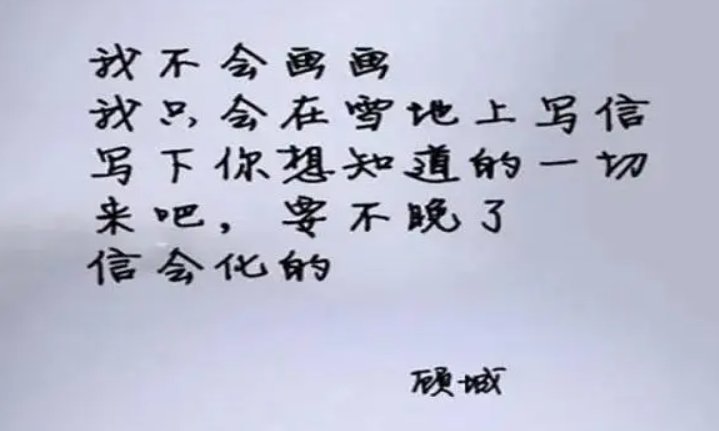 我不会画画
我只会在雪地上写信
写下你想知道的一切
来吧，要不晚了
信会化的
顾城